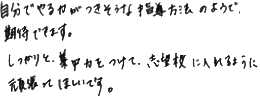 自分でやる力がつきそうな指導方法のようで、
期待できます。
しっかりと、集中力をつけて、志望校に入れるように
頑張ってほしいです。